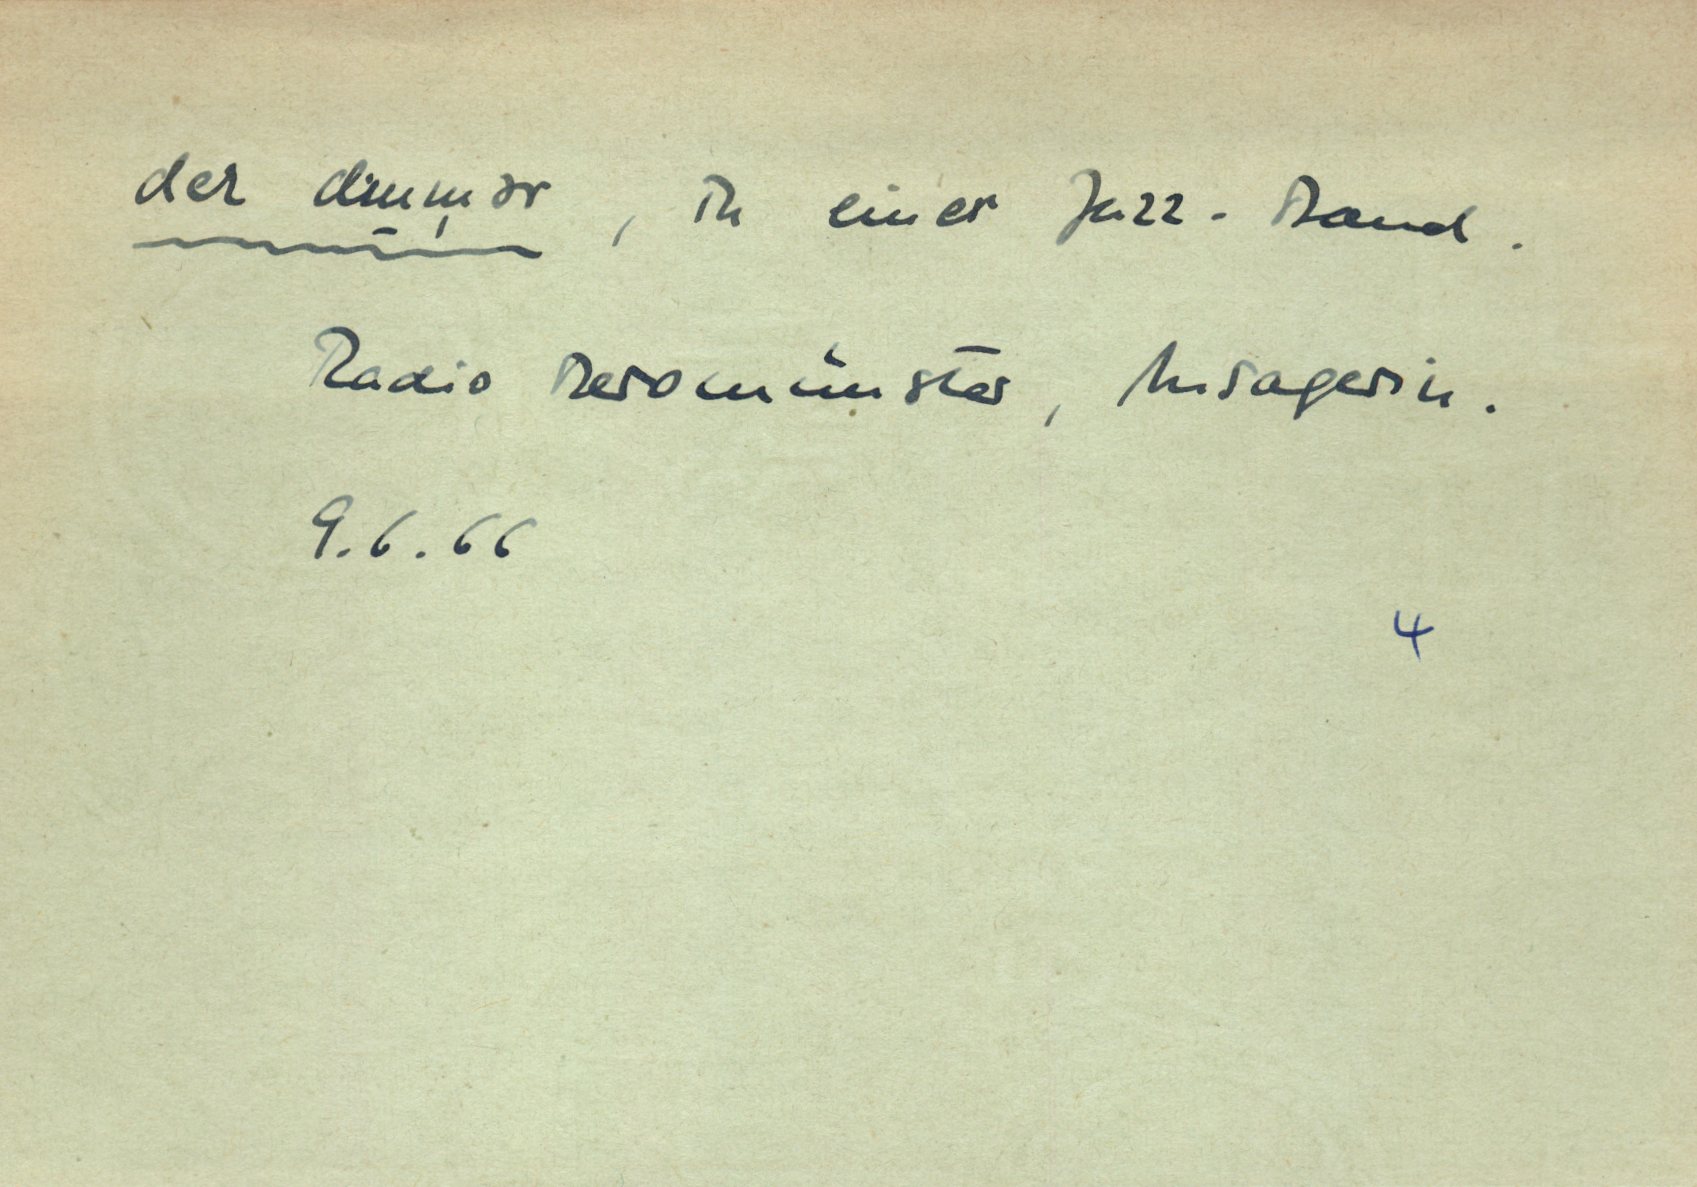 der drummər, in einer Jazz-Band.
Radio Beromünster, Ansagerin.
9.6.66
4